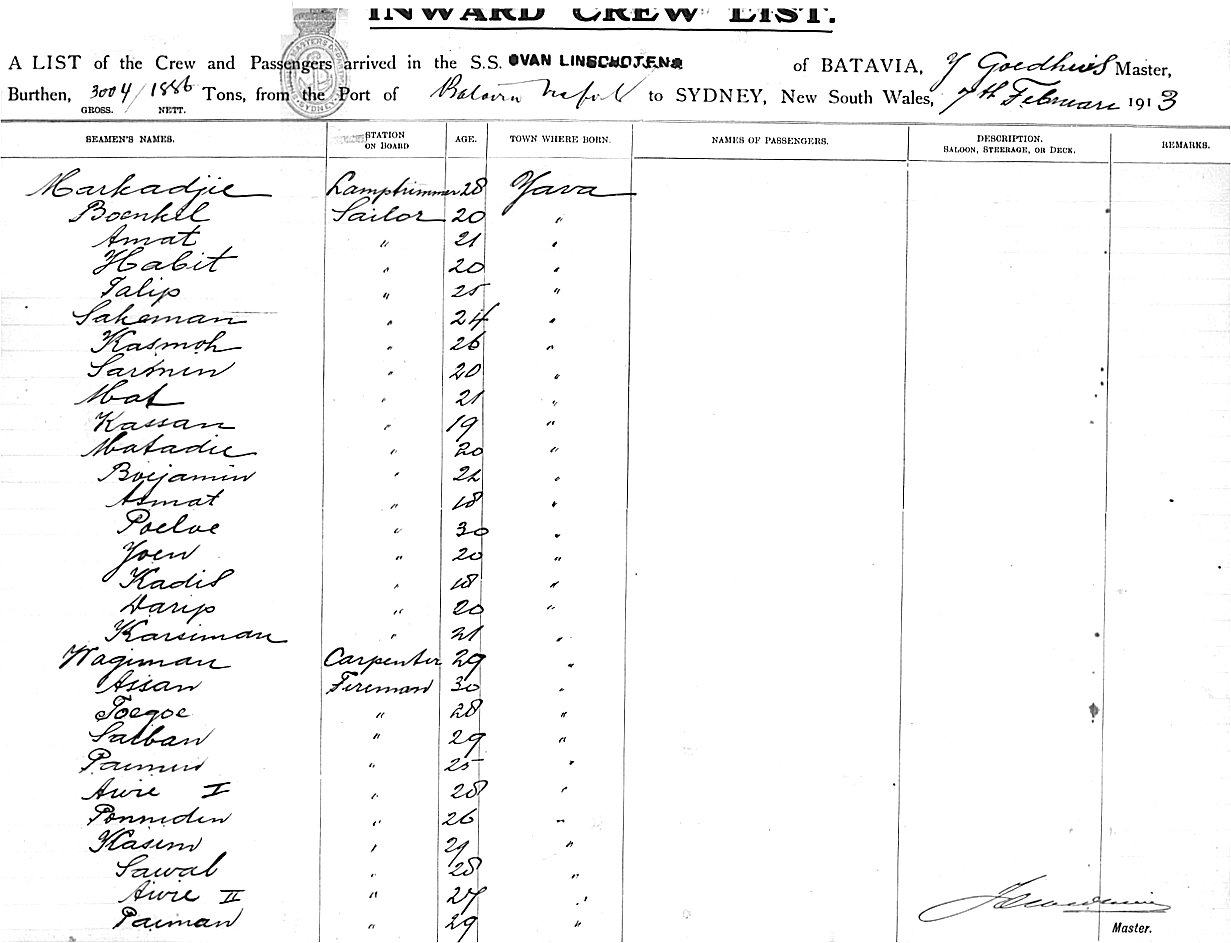 INWARD CREW LIST.
A LIST of the Crew and Passengers arrived in the S.S. VAN LINSCHOTEN of BATAVIA, J Goedhuis Master,
Burthen, 3004/1886 Tons, from the Port of Batavia to SYDNEY, New South Wales, 7th Februari 1913
GROSS. NETT.
SEAMEN'S NAMES. STATION ON BOARD AGE. TOWN WHERE BORN. NAMES OF PASSENGERS. DESCRIPTION. SALOON, STEERAGE, OR DECK. REMARKS.
Markadjie Lamptrimmer 28 Yava
Boenkel Sailor 20 "
Amat " 21 "
Habit " 20 "
Talip " 25 "
Sakeman " 24 "
Kasmoh " 26 "
Sarmin " 20 "
Mat " 21 "
Kassan " 19 "
Matadie " 20 "
Boejamin " 22 "
Asmat " 18 "
Poeloe " 30 "
Joen " 20 "
Kadis " 18 "
Darip " 20 "
Karsiman " 21 "
Wagiman Carpenter 29 "
Assan Fireman 30 "
Toegoe " 28 "
Saiban " 29 "
Paimin " 25 "
Awie I " 28 "
Ponniden " 26 "
Kasim " 21 "
Sawal " 28 "
Awie II " 27 "
Paiman " 29 "
Master.